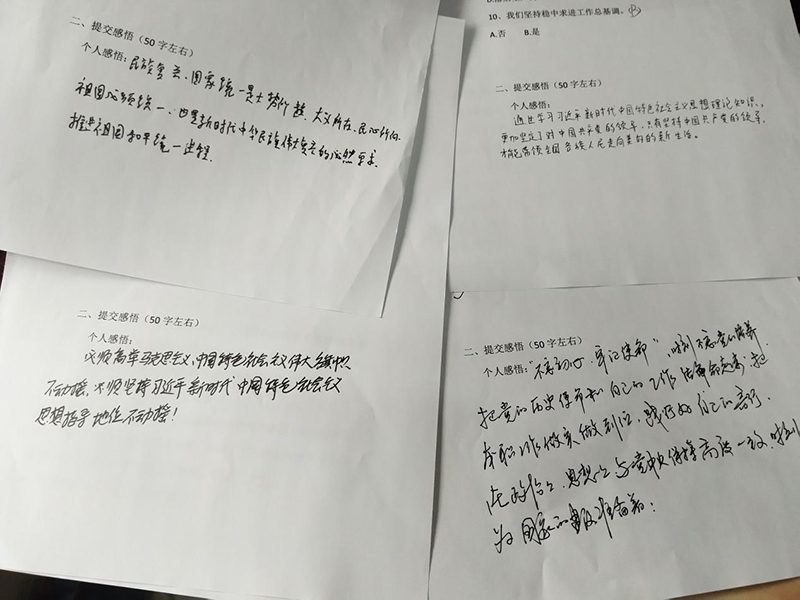 二、提交感悟（50 字左右）
个人感悟：民族复兴、国家统一是大势所趋、大义所在、民心所向.
祖国必须统一、也是新时代中华民族伟大复兴的必然要求.
推进祖国和平统一进程.
10、我们坚持稳中求进工作总基调。B
A.否 B.是
二、提交感悟（50 字左右）
个人感悟：
通过学习习近平新时代中国特色社会主义思想理论知识，
更加坚定了对中国共产党的领导，只有坚持中国共产党的领导，
才能带领全国各族人民走向美好的新生活。
二、提交感悟（50 字左右）
个人感悟：
必须高举马克思主义、中国特色社会主义伟大旗帜
不动摇，必须坚持习近平新时代中国特色社会主义
思想指导地位不动摇！
二、提交感悟（50 字左右）
个人感悟："不忘初心、牢记使命"，时刻不忘党的
把党的历史使命和自己的工作 起
本职工作做实做到位，践行好自己的
在政治上、思想上与党中央保持高度一致，时刻
为国家的 准备着；